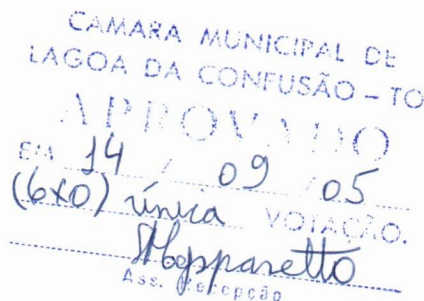 CAMARA MUNICIPAL DE
LAGOA DA CONFUSÃO – TO
APROVADO
EM 14 / 09 / 05
(6x0) única VOTAÇÃO.
Ass. Recepção